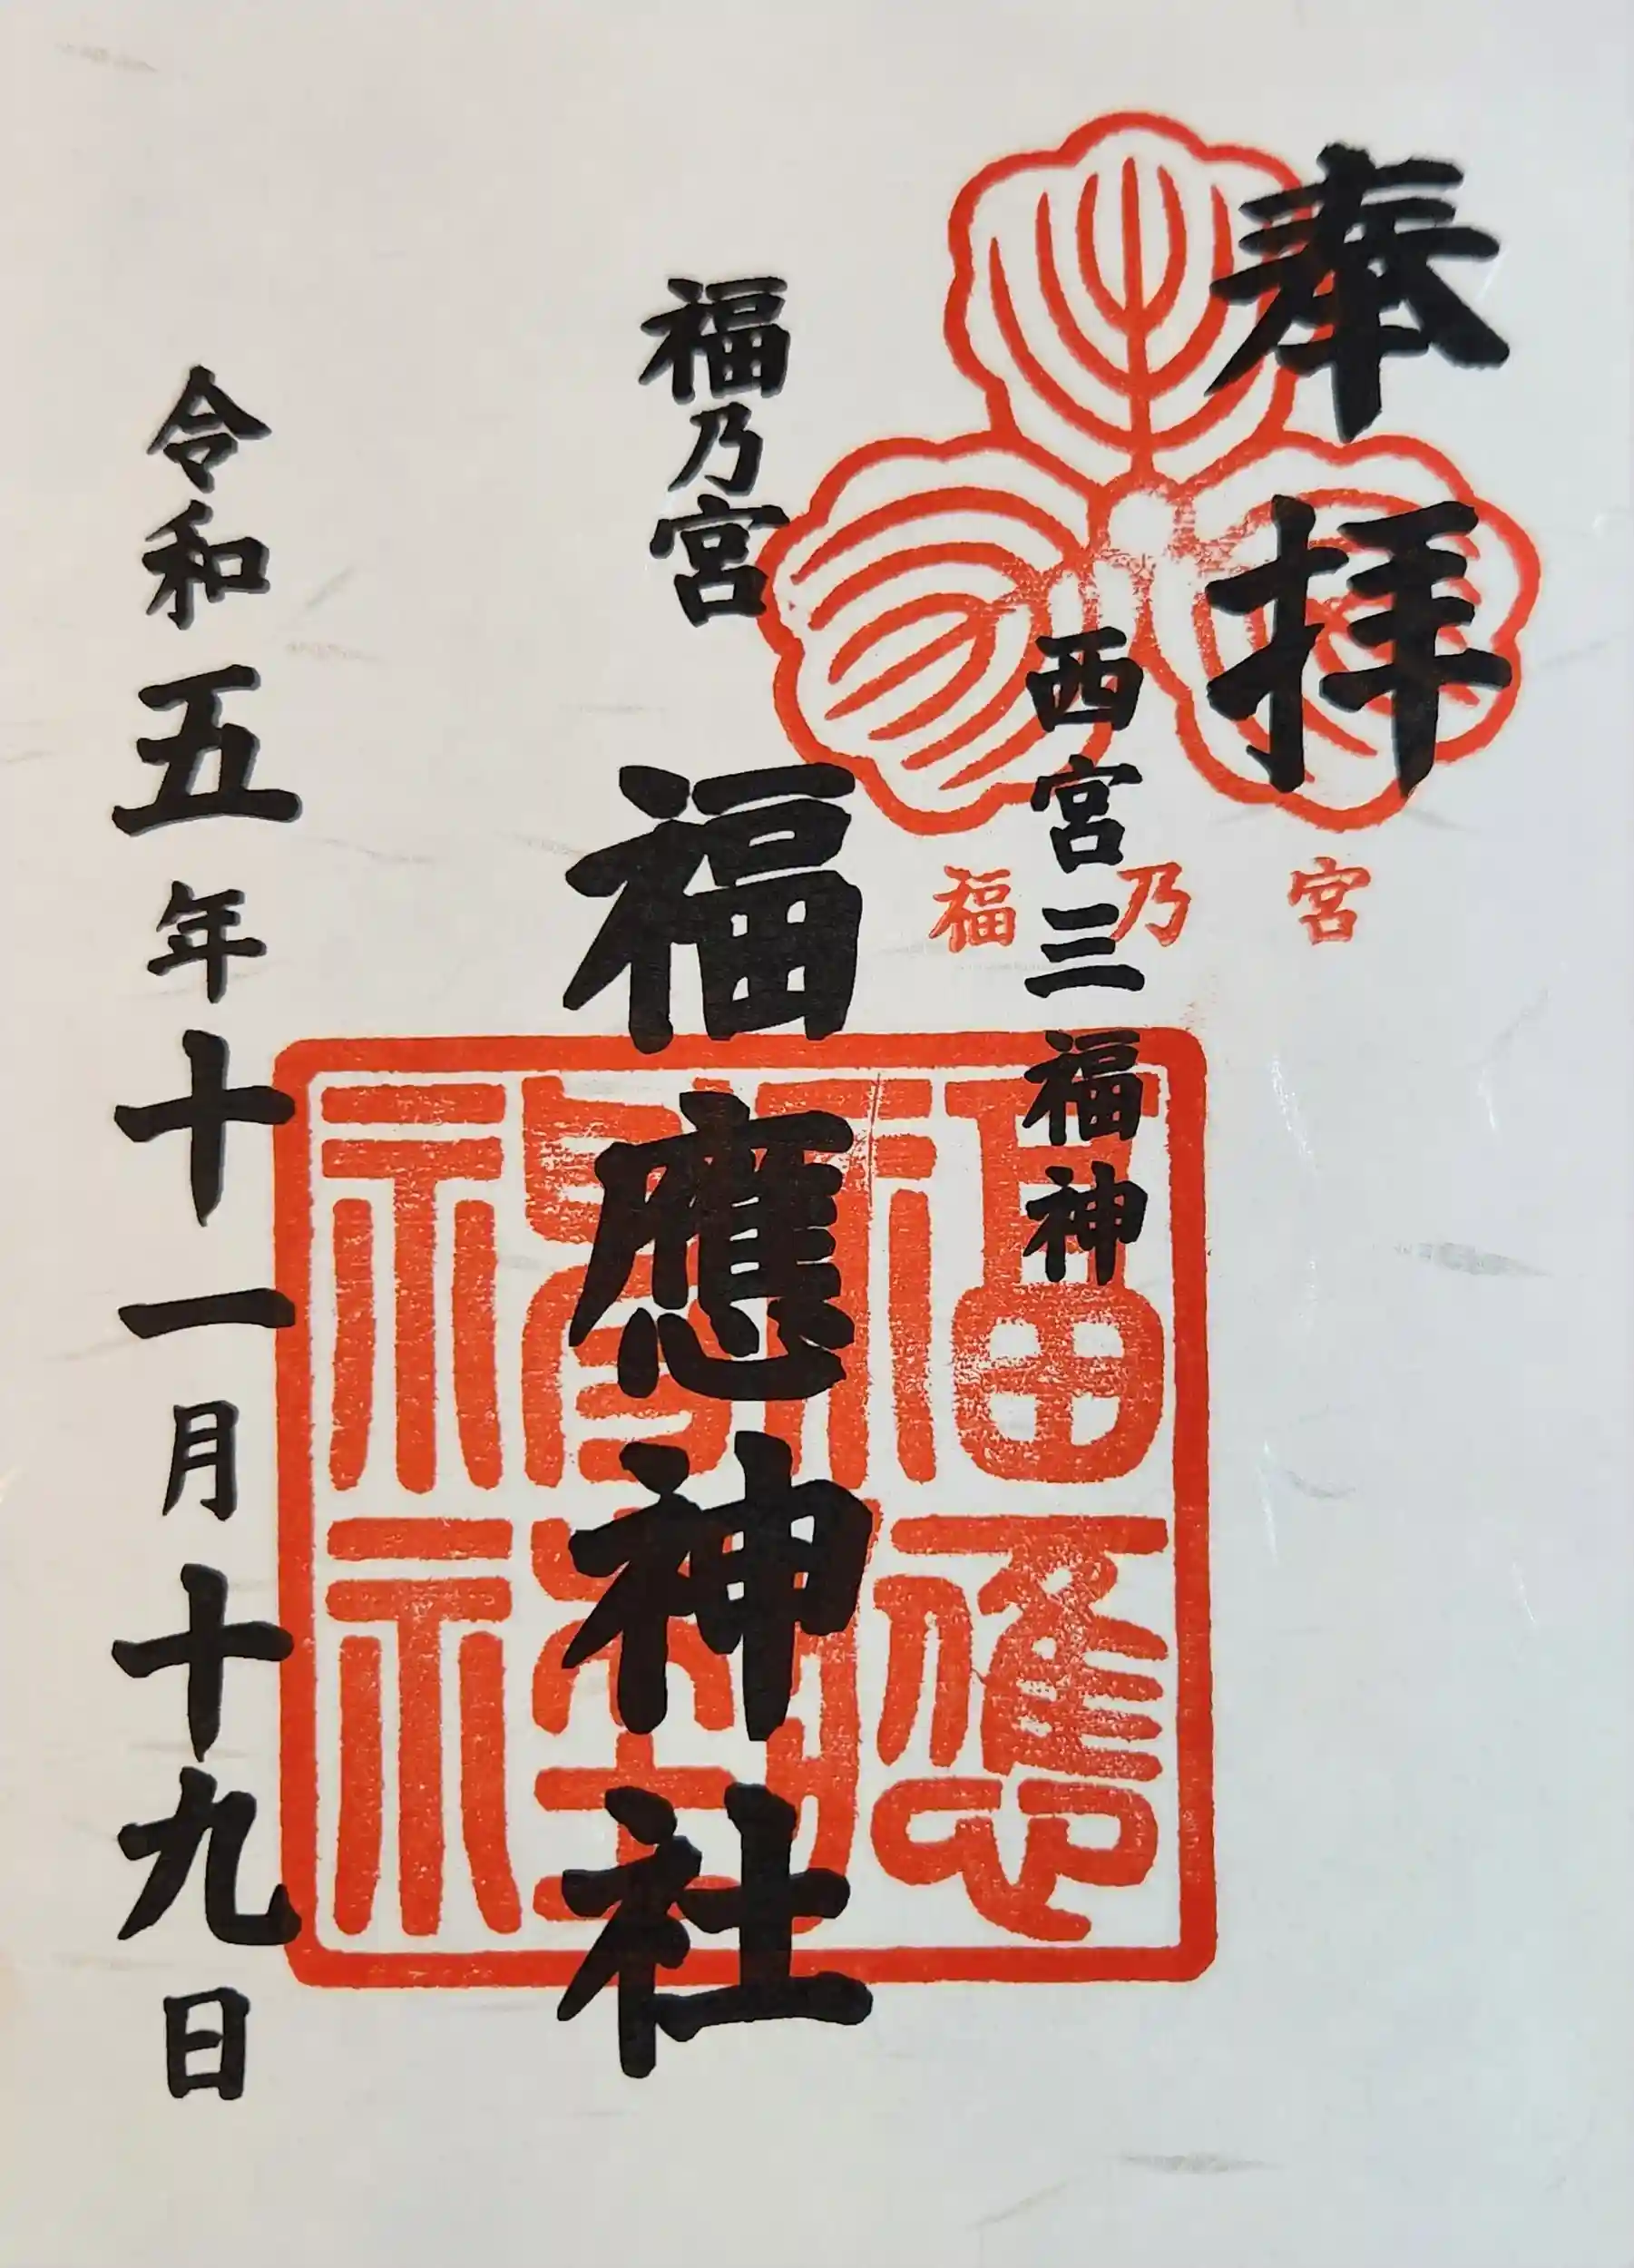 奉拝
西宮三福神
福乃宮
福乃宮
福應神社
令和五年十一月十九日